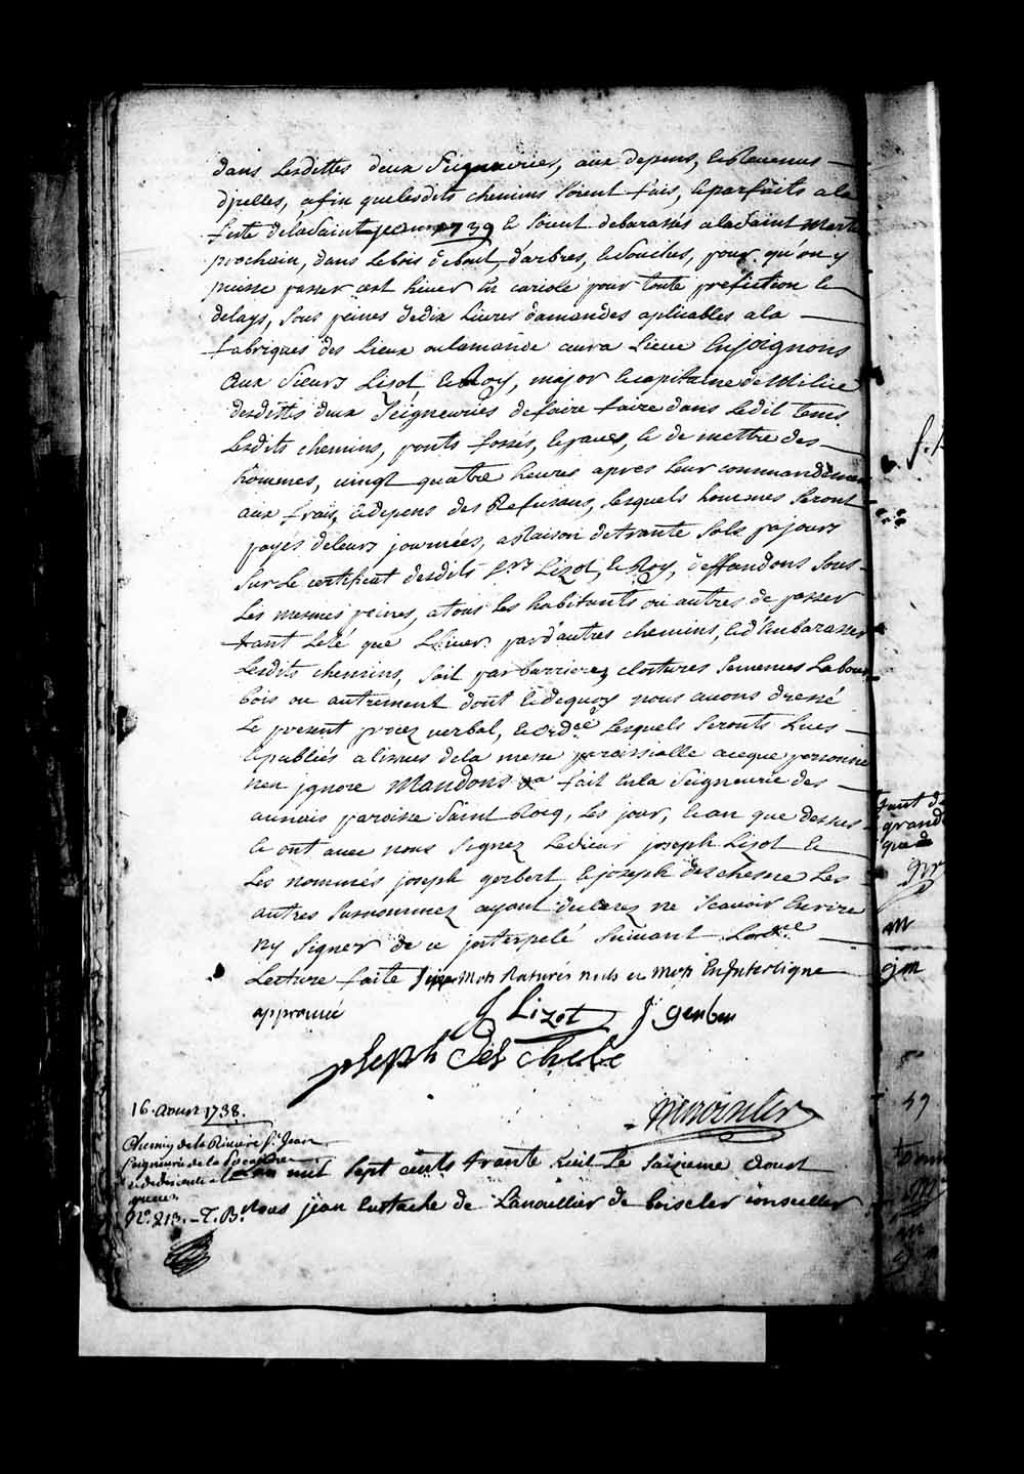 dans lesdittes deux Seigneuries, aux depens, les Revenus
d'jcelles, afin que lesdits chemins soient fais, & parfaits a la
feste de la Saint jean 1739 & soient debarassés a la Saint Martin
prochain, dans le bois debout, d'arbres, & souches, pour qu'on y
puisse passer cet hiver en cariole pour toute prefiction &
delays, sous peines de dix Livres damandes aplicables a la
fabriques des Lieux ou lamande aura Lieue Enjoignons
aux Sieurs Lizot & Roy, major & capitaine de Milice
desdittes deux Seigneuries de faire faire dans ledit tems
lesdits chemins, ponts fossés, & de mettre des
hommes, vingt quatre heures apres leur commandement
aux frais, & depens des Refusans, lesquels hommes seront
payés de leurs journées, a Raison de trante sols pajours
sur le certificat desdits Srs Lizot, & Roy, deffandons sous
les mesmes peines, a tous les habitants ou autres de passer
tant leté que Lhiver par d'autres chemins, & d'Enbarasser
lesdits chemins, soit par barrieres clostures semences Labour
bois ou autrement dont & dequoy nous avons dressé
le present procez verbal, & ordce lesquels seronts Lues
& publiés a lissues de la messe paroissialle aceque personne
nen jgnore Mandons &a fait En la Seigneurie des
aunais paroisse Saint Rocq, Les jour, & an que dessus
& ont avec nous Signez Ledieur joseph Lizot &
Les nommés joseph gerbert & joseph deschesne Les
autres surnommez ayant declarez ne scavoir Ecrire
ny signer de ce jnterpelé suivant Lordce
Lecture faite Mots Raturés nuls et mots En Jnterligne
approuvé
J Lizot J gerber
joseph des chesne
Lanoullier
16. Aoust 1738.
Chemin de la Riviere St Jean
Seigneurie de la
No. 213. - T. B.
L'an mil sept cents trante huit Le saizieme aoust
nous jean Eustache de Lanoullier de boiscler conseiller